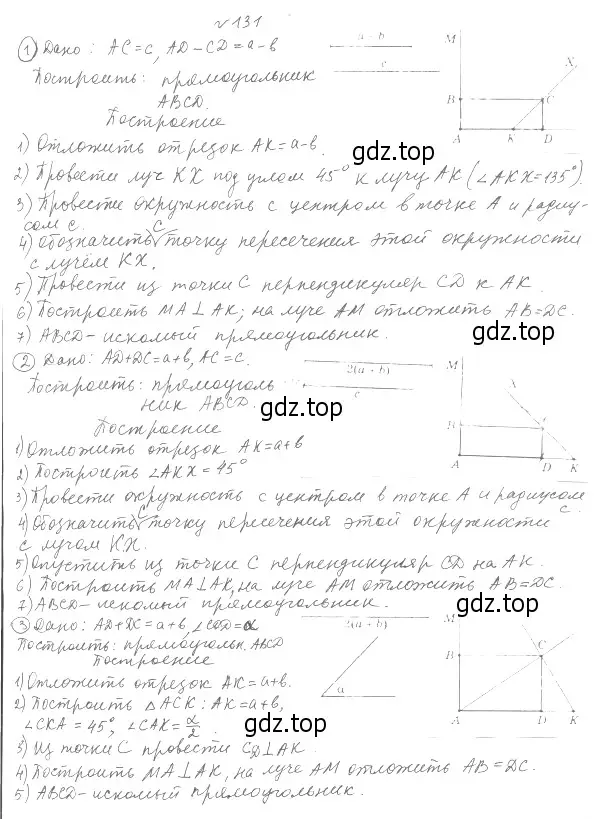 №131
① Дано: AC=c, AD-CD=a-b
a-b
c
Построить: прямоугольник
ABCD.
Построение
M
X
B
C
A
K
D
1) Отложить отрезок AK=a-b.
gdz.top
2) Провести луч KX под углом 45° к лучу AK (∠AKX=135°).
3) Провести окружность с центром в точке A и радиу-
сом c.
4) Обозначить C точку пересечения этой окружности
с лучём KX.
5) Провести из точки C перпендикуляр CD к AK.
6) Построить MA⊥AK; на луче AM отложить AB=DC.
7) ABCD-искомый прямоугольник.
gdz.top
② Дано: AD+DC=a+b, AC=c.
2(a+b)
c
Построить: прямоуголь
ник ABCD.
gdz.top
Построение
M
X
B
C
A
D
K
1) Отложить отрезок AK=a+b
gdz.top
2) Построить ∠AKX=45°
3) Провести окружность с центром в точке A и радиусом
c.
4) Обозначить C точку пересечения этой окружности
с лучом KX.
5) Опустить из точки C перпендикуляр CD на AK.
6) Построить MA⊥AK, на луче AM отложить AB=DC.
7) ABCD-искомый прямоугольник.
gdz.top
③ Дано: AD+DC=a+b, ∠COD=α
2(a+b)
α
Построить: прямоугольн. ABCD
Построение
M
B
C
A
D
K
1) Отложить отрезок AK=a+b.
2) Построить △ACK: AK=a+b,
∠CKA=45°, ∠CAK=α/2.
gdz.top
3) Из точки C провести CD⊥AK.
4) Построить MA⊥AK, на луче AM отложить AB=DC.
5) ABCD-искомый прямоугольник.
gdz.top